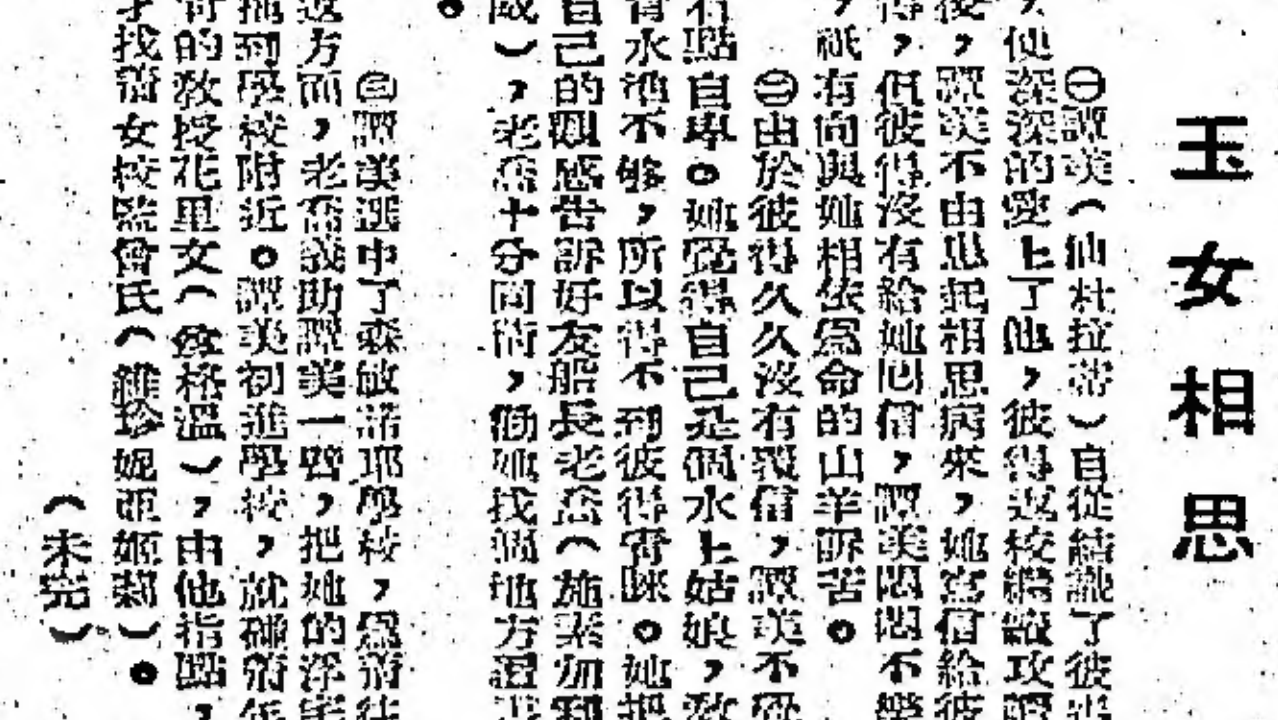 玉女相思
㊀譚美（仙杜拉蒂）自從結識了彼
，他深深的愛上了他，彼得返校繼續攻
後，譚美不由思起相思病來，她寫信給彼
得，但彼得沒有給她囘信，譚美悶悶不樂
，祇有向與她相依爲命的山羊訴苦。
㊁由於彼得久久沒有覆信，譚美不
有點自卑。她覺得自己是個水上姑娘，敎
育水準不够，所以得不到彼得靑睞。她把
自己的觀感告訴好友船長老喬（施素加利
成），老喬十分同情，勸她找個地方
。
㊂譚美選中了森敏諾耶學校，爲着
這方面，老喬義助譚美一臂，把她的浮
拖到學校附近。譚美初進學校，就碰着
的敎授花里女（格溫），由他指點，
才找着女校監曾氏（維珍妮亞姬萄）。
（未完）